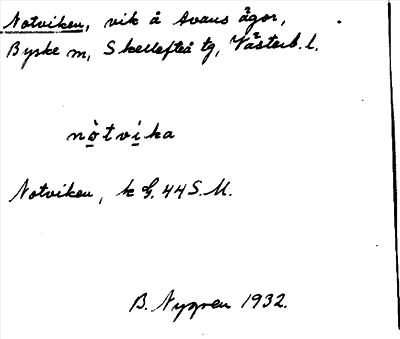 Notviken, vik å Avans ägor,
Byske m, Skellefteå tg, Västerb. l.
nò̱tvi̱ka
Notviken, k G. 44 S.U.
B. Nygren 1932.